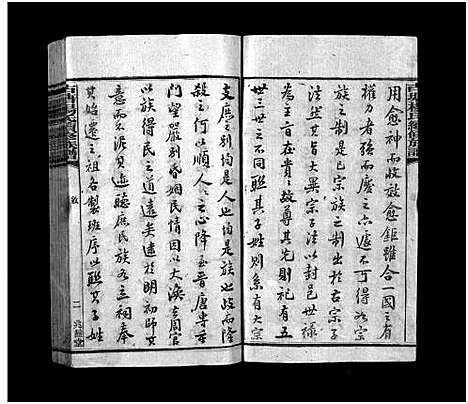 用愈神而收效愈鉅雖合一國之有
權力者強而廢之亦遽不可得此宗
族之制是已宗族之制出於古宗子
法其旨大異宗子法以封邑世祿
為主旨在貴故尊其先則祀有五
世三世之不同聯其子姓則系有大宗
支庶之別均是人也均是族也故而隆
殺之何以順人之心降至晉唐專尚
門望嚴別昏姻民情因以大渙去周官
以族得民之道遠矣逮於明初師其
意而不泥其迹聽庶民族各立祠奉
其始遷之祖各製班序以聯其子姓
敘
二